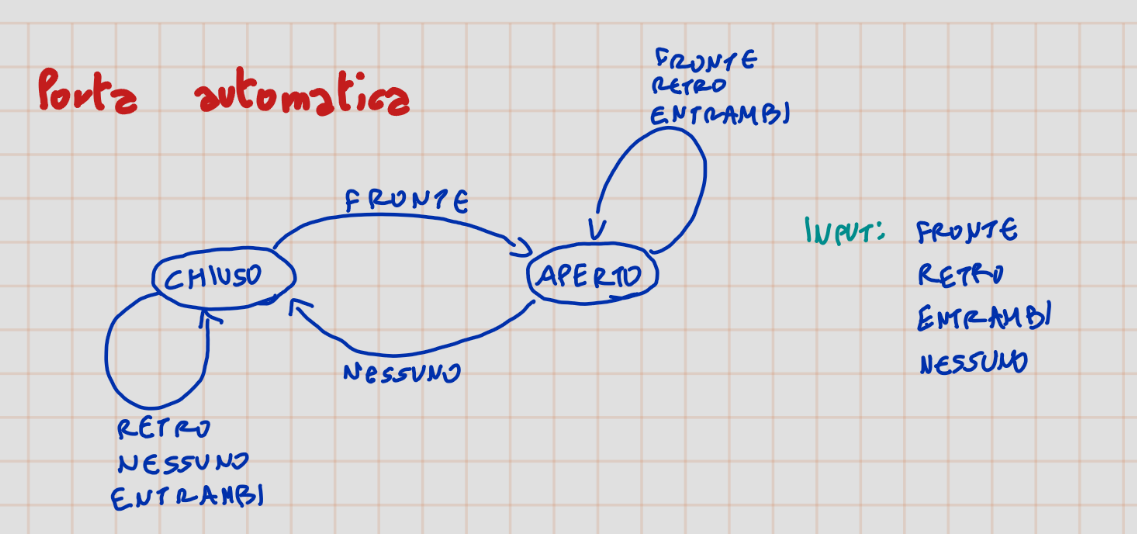 Porta automatica
FRONTE
RETRO
ENTRAMBI
FRONTE
CHIUSO
APERTO
NESSUNO
RETRO
NESSUNO
ENTRAMBI
INPUT: FRONTE
RETRO
ENTRAMBI
NESSUNO